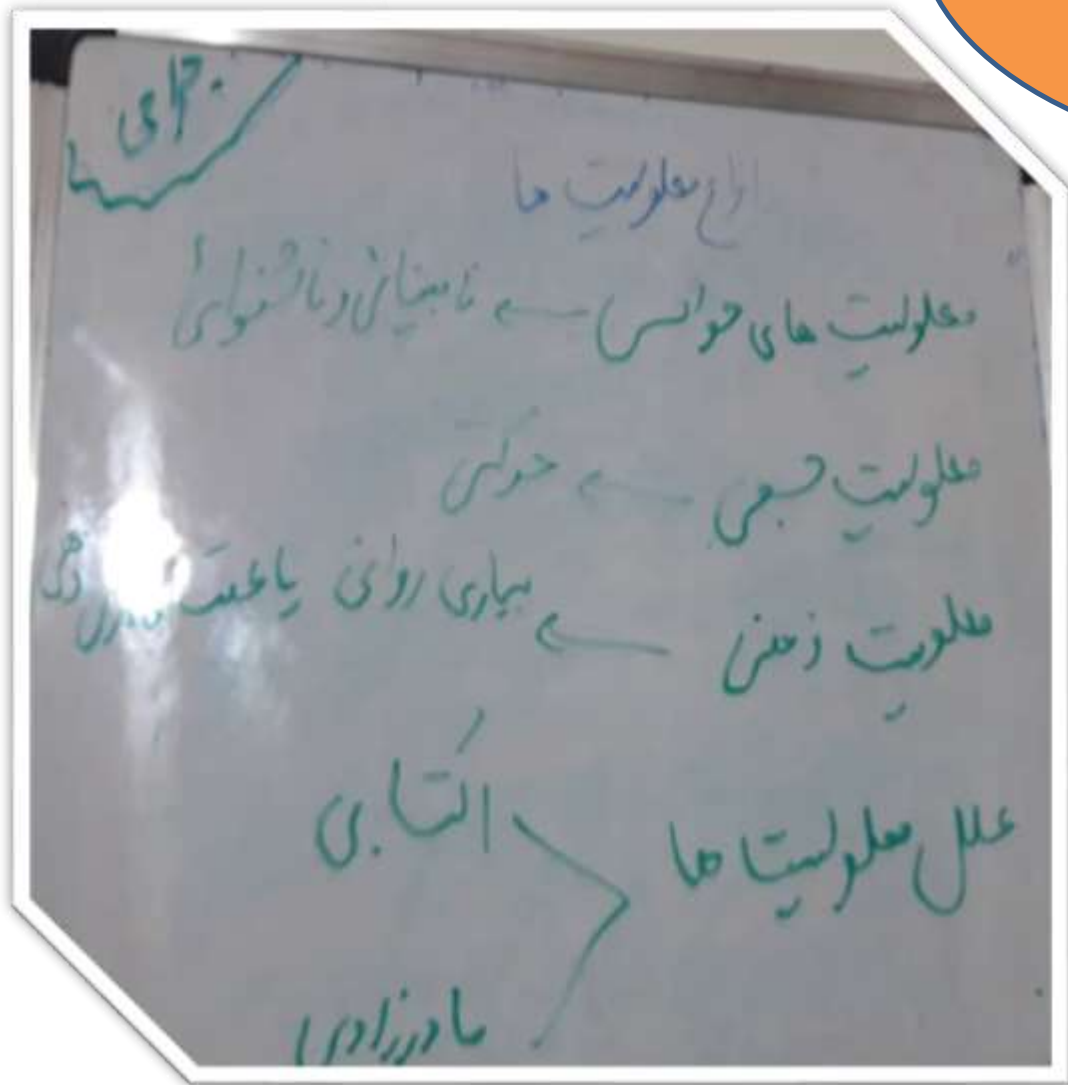 انواع معلولیت ها
معلولیت های حواسی ← نابینائی و ناشنوائی
معلولیت جسمی ← حرکتی
معلولیت ذهنی ← بیماری روانی یا عقب
علل معلولیت ها
اکتسابی
مادرزادی